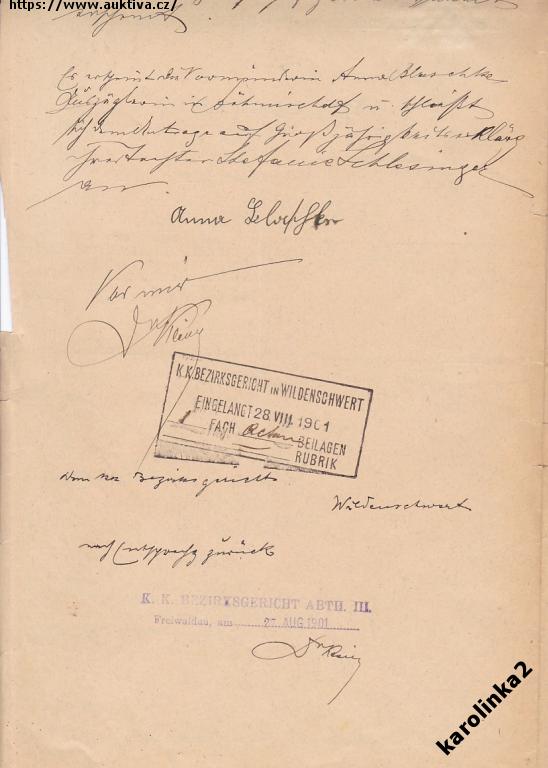 https://www.auktiva.cz/
erscheint
Es erscheint die Vormünderin Anna Blaschke
in Böhmischdf u. schließt
sich dem Antrage auf Großjährigkeitserklärg
ihrer Tochter Stefanie Schlesinger
an.
Anna Blaschke
Vor mir
K.K. BEZIRKSGERICHT IN WILDENSCHWERT
EINGELANGT 28 VIII 1901
1 FACH BEILAGEN
RUBRIK
Dem k.k. Bezirksgericht
Wildenschwert
nach Entsprechg zurück
K. K. BEZIRKSGERICHT ABTH. III.
Freiwaldau, am 27. AUG 1901
karolinka2